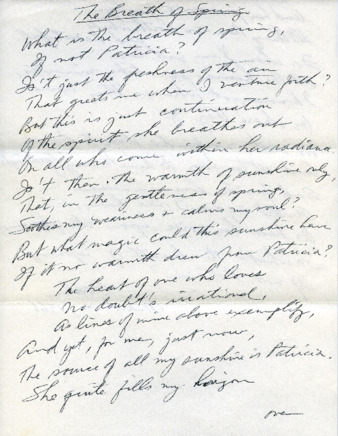 The Breath of Spring
What is the breath of spring,
If not Patricia?
Is't just the freshness of the air
That greets me when I venture forth?
But this is just continuation
Of the spirit she breathes out
On all who come within her radiance
Is't then the warmth of sunshine only,
That, in the gentleness of spring,
Soothes my weariness & calms my soul?
But what magic could this sunshine have
If it no warmth drew from Patricia?
The heart of one who loves
No doubt's irrational,
As lines of mine above exemplify,
And yet, for me, just now,
The source of all my sunshine is Patricia.
She quite fills my horizon
over